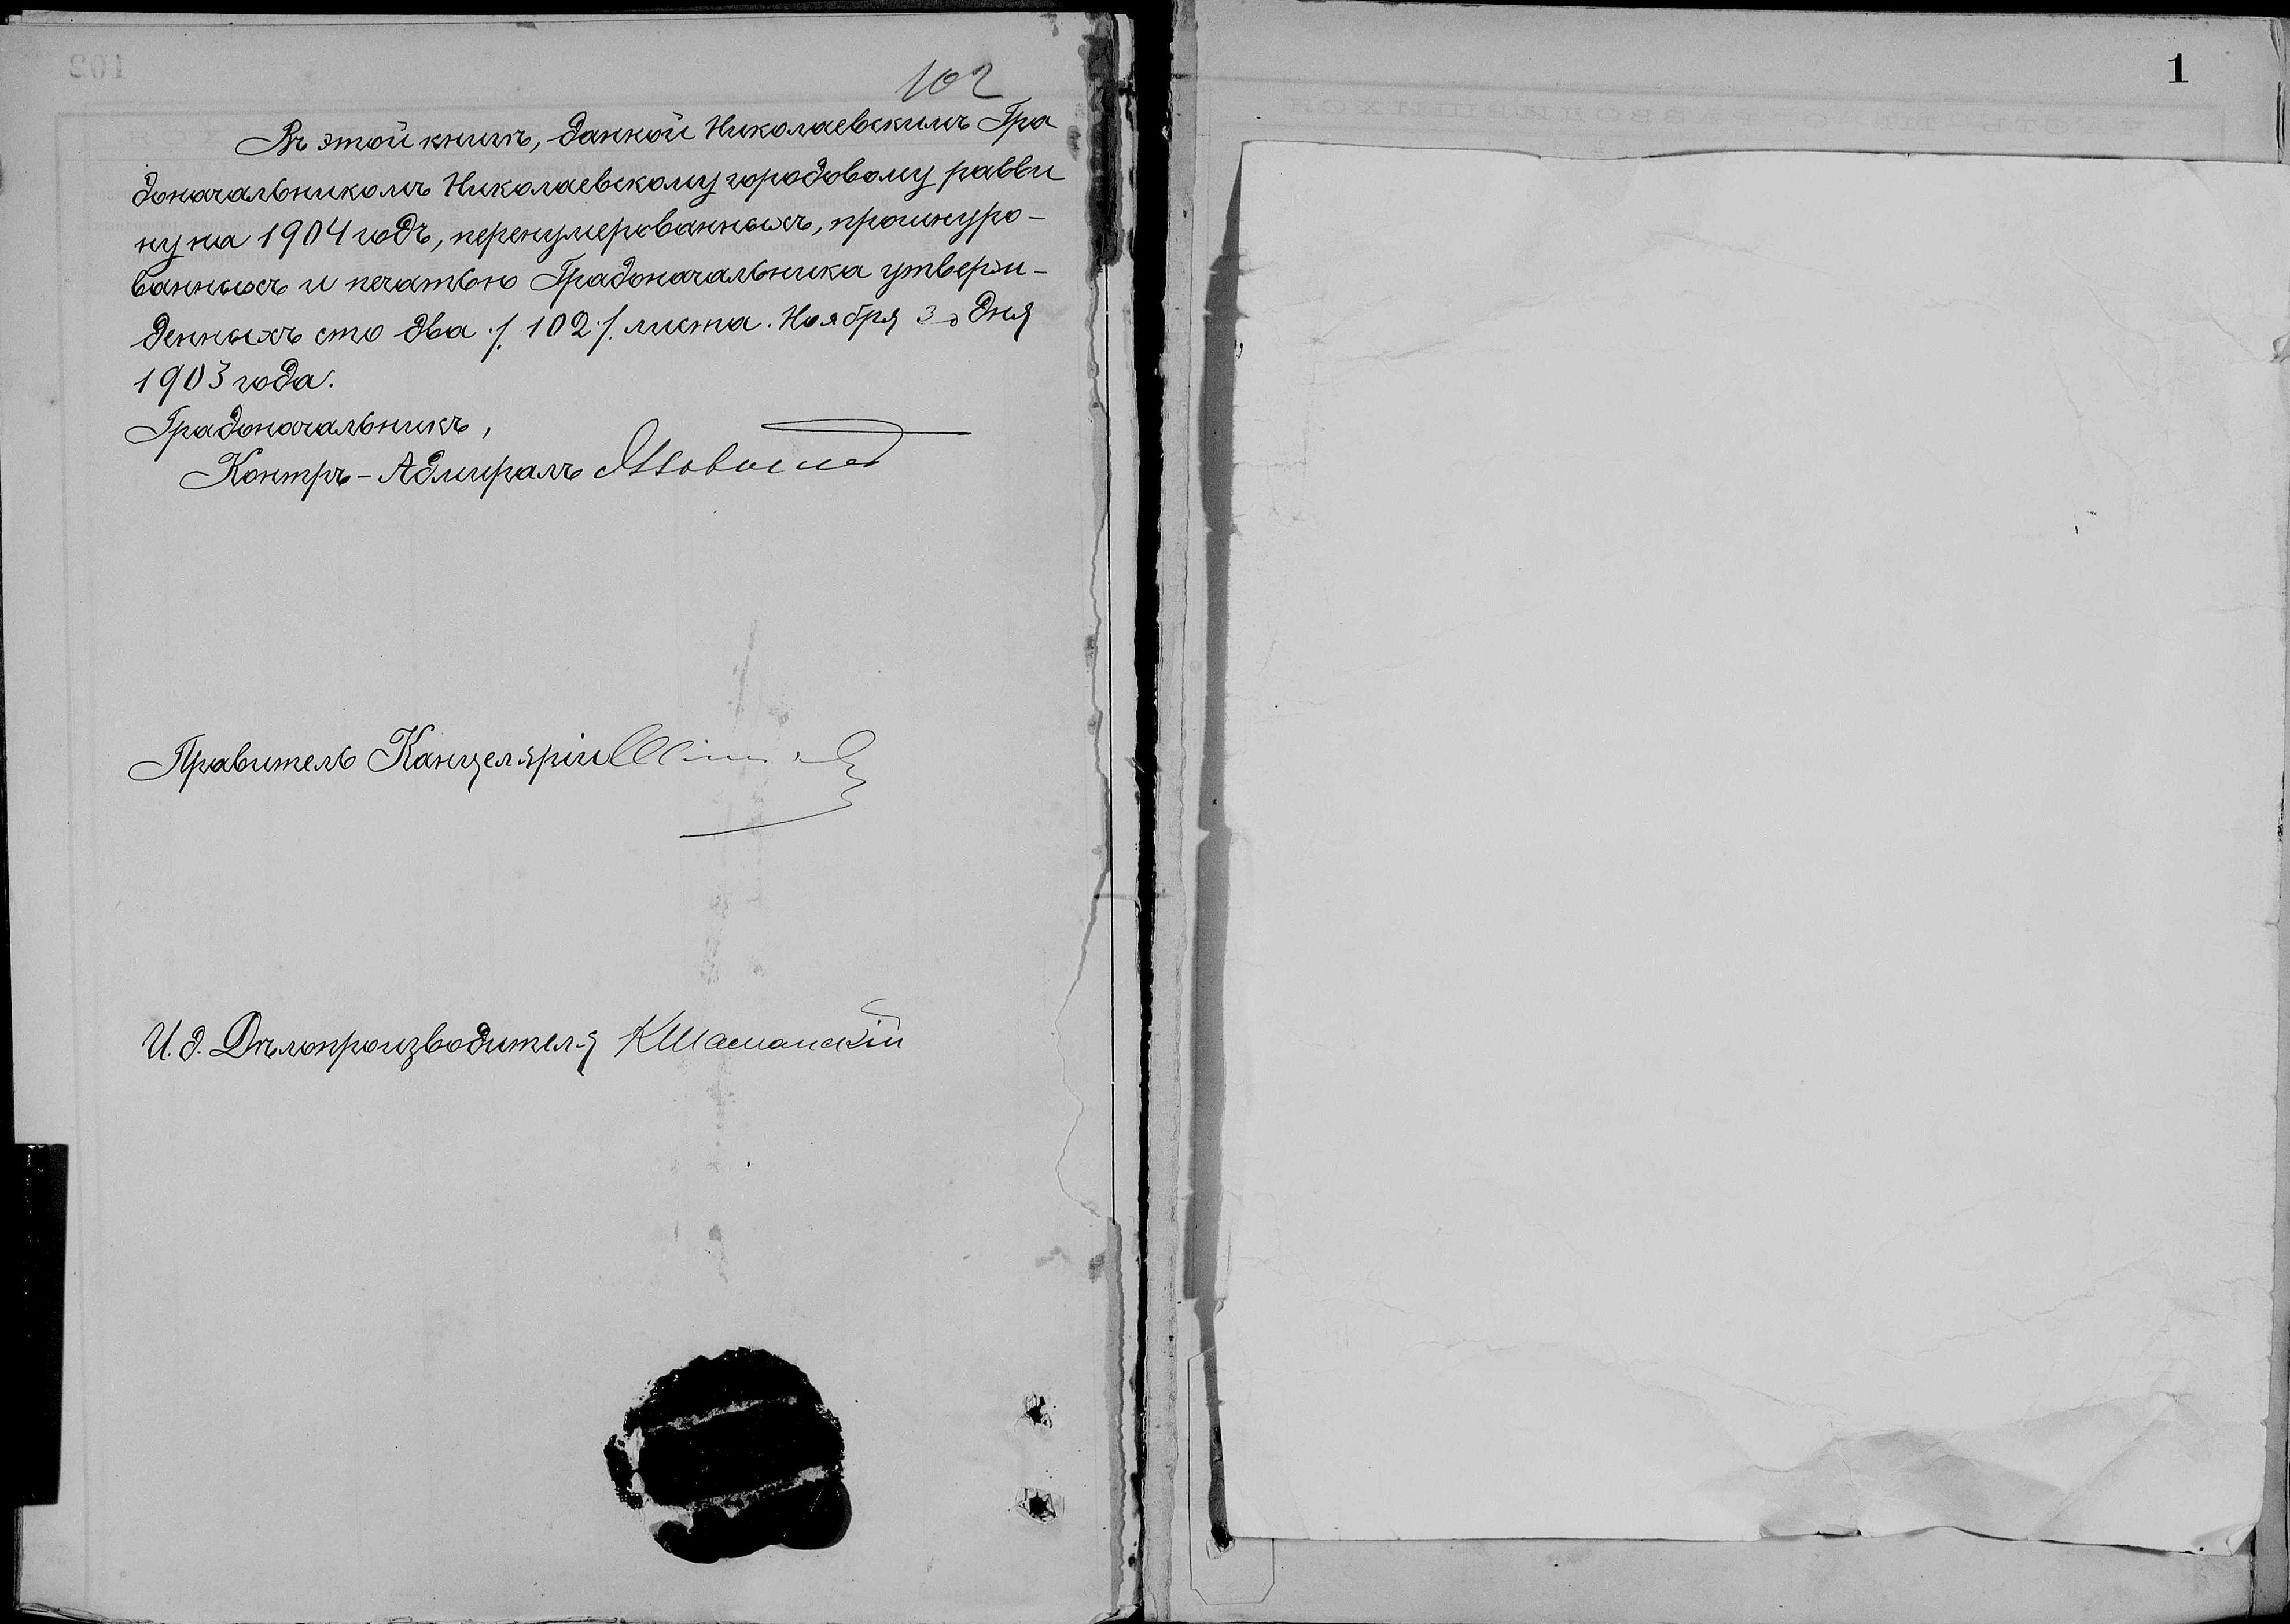 102
Въ этой книгѣ, данной Николаевскимъ Гра
доначальникомъ Николаевскому городовому равви
ну на 1904 годъ, перенумерованныхъ, прошнуро-
ванныхъ и печатью Градоначальника утверж-
денныхъ сто два ./. 102 ./. листа. Ноября 3 дня
1903 года.
Градоначальникъ,
Контръ-Адмиралъ
Правитель Канцеляріи
И. д. Дѣлопроизводителя
1